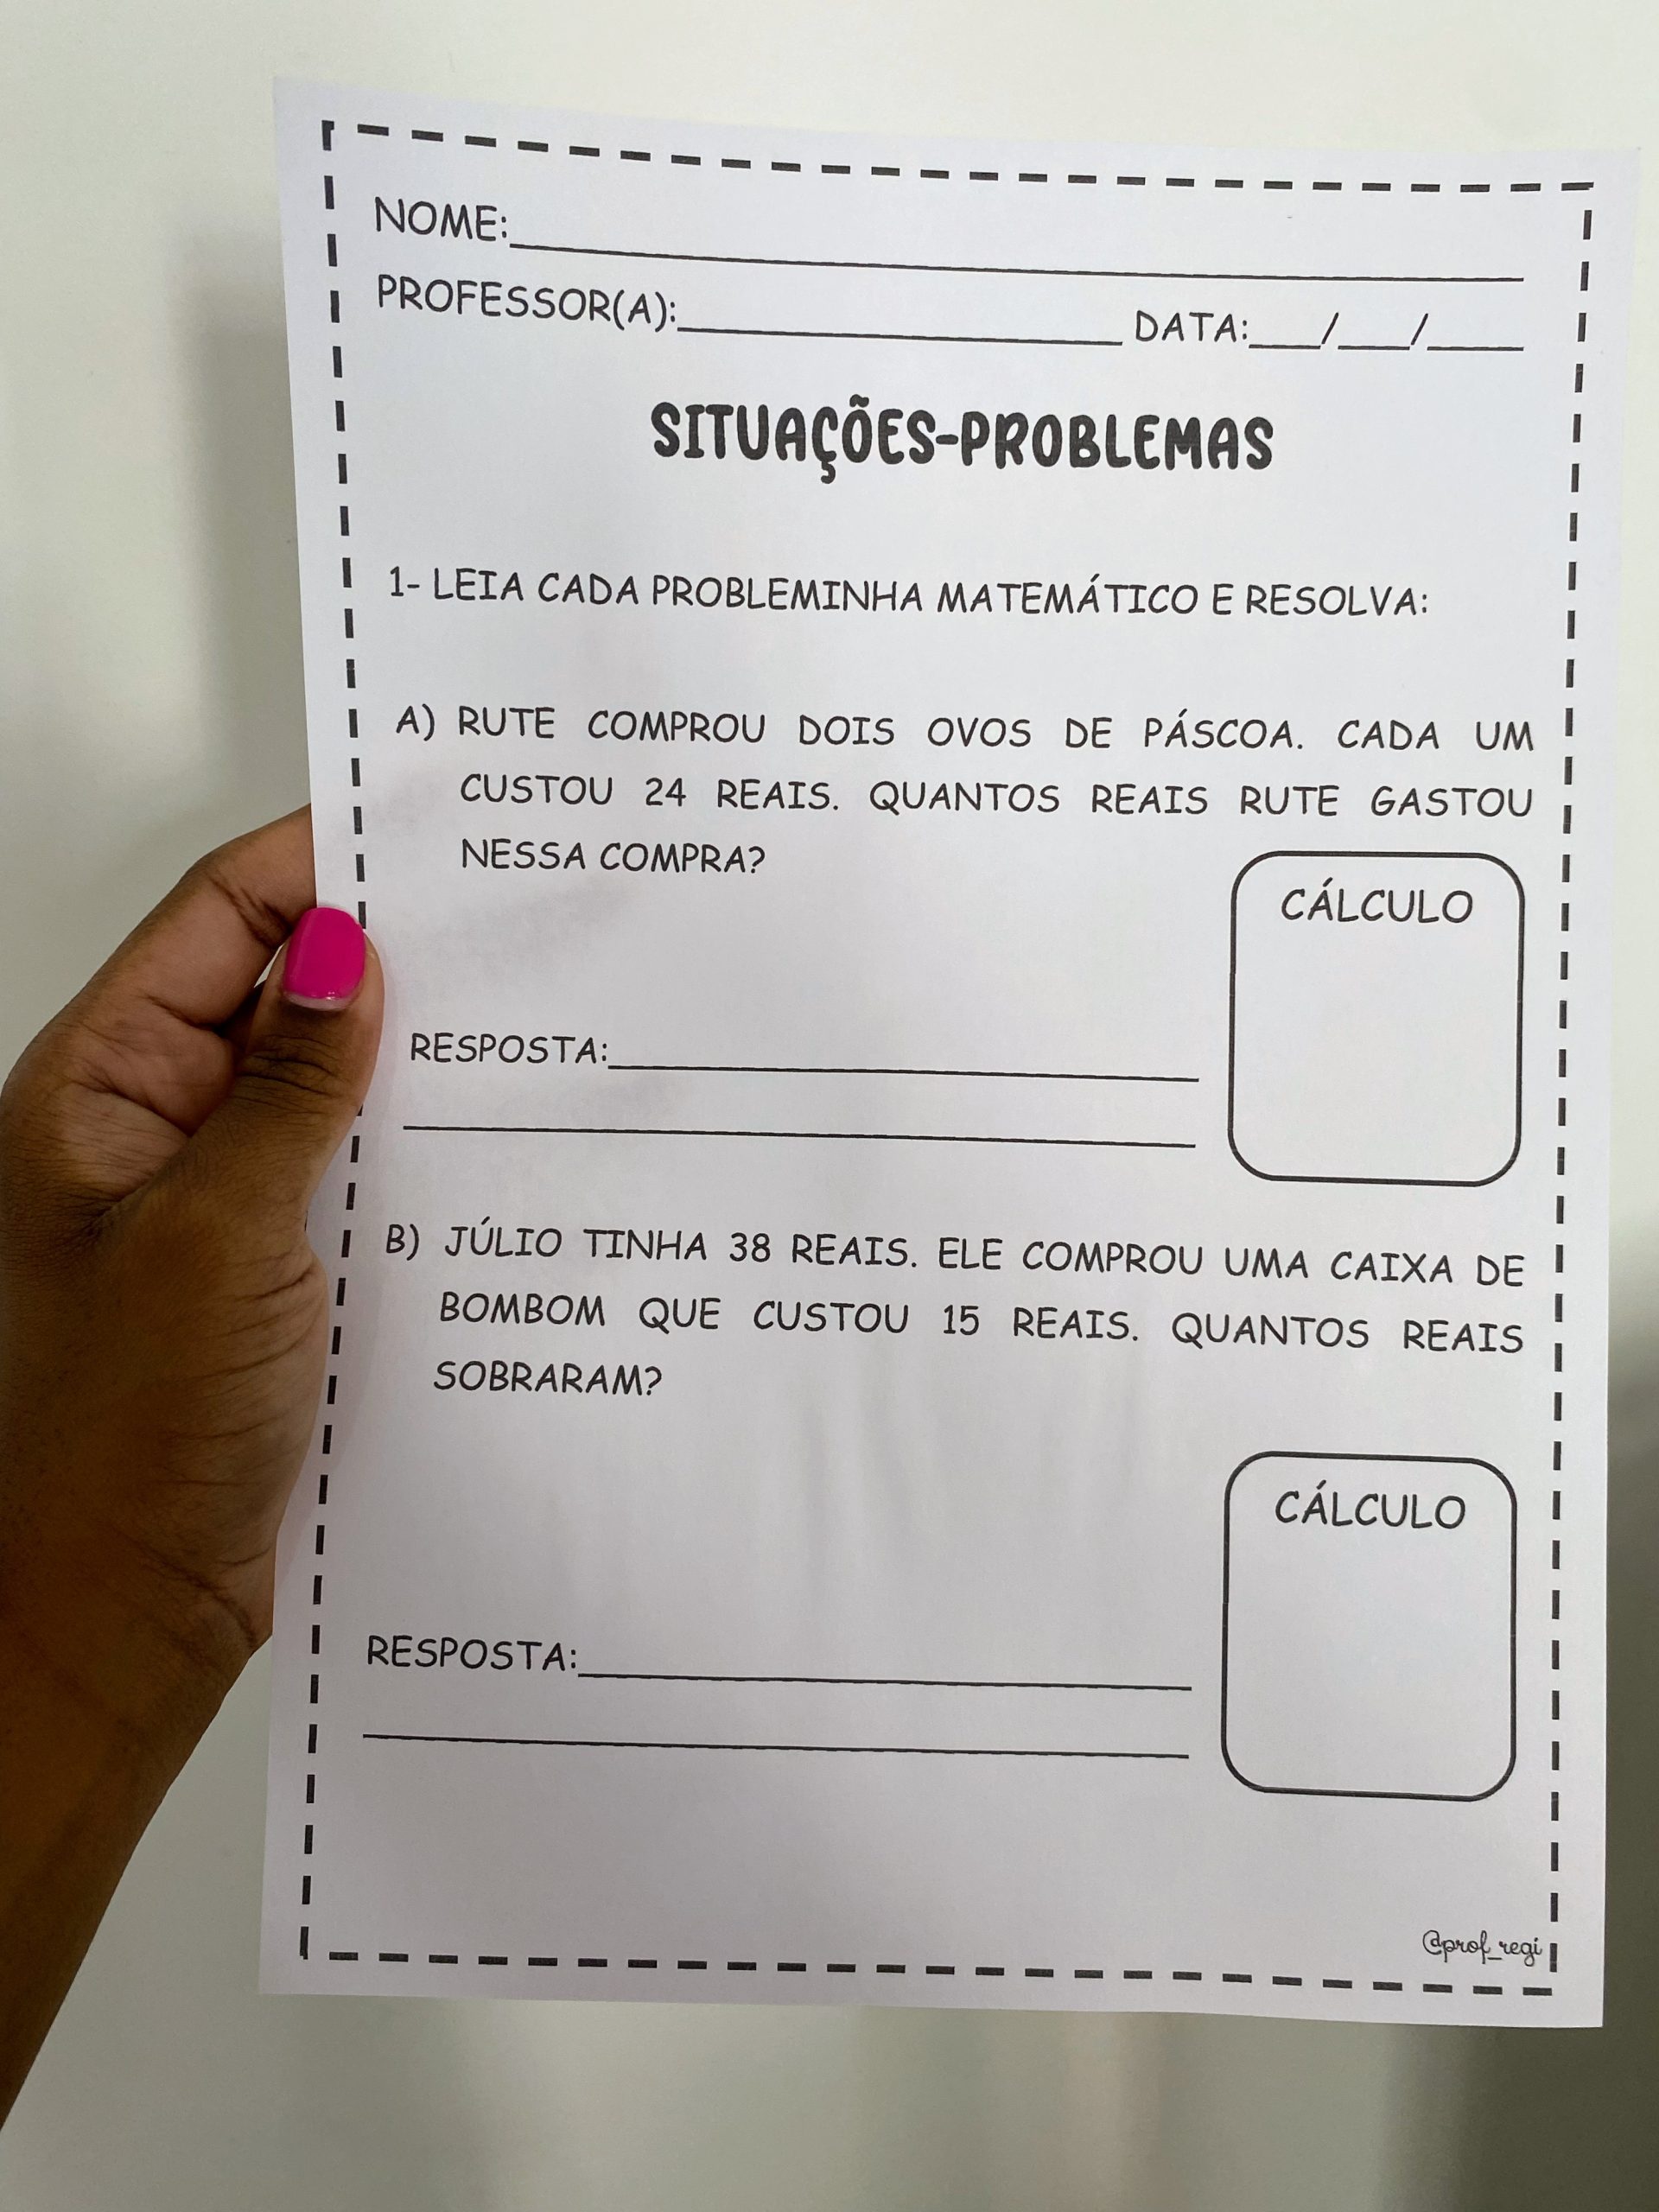 NOME:
PROFESSOR(A): DATA: / /
SITUAÇÕES-PROBLEMAS
1- LEIA CADA PROBLEMINHA MATEMÁTICO E RESOLVA:
A) RUTE COMPROU DOIS OVOS DE PÁSCOA. CADA UM
CUSTOU 24 REAIS. QUANTOS REAIS RUTE GASTOU
NESSA COMPRA?
CÁLCULO
RESPOSTA:
B) JÚLIO TINHA 38 REAIS. ELE COMPROU UMA CAIXA DE
BOMBOM QUE CUSTOU 15 REAIS. QUANTOS REAIS
SOBRARAM?
CÁLCULO
RESPOSTA:
@prof_regi